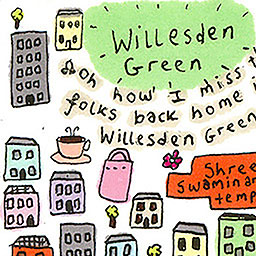 Willesden
Green
Ooh how I miss t
folks back home i
Willesden Green
Shree
Swaminar
temp